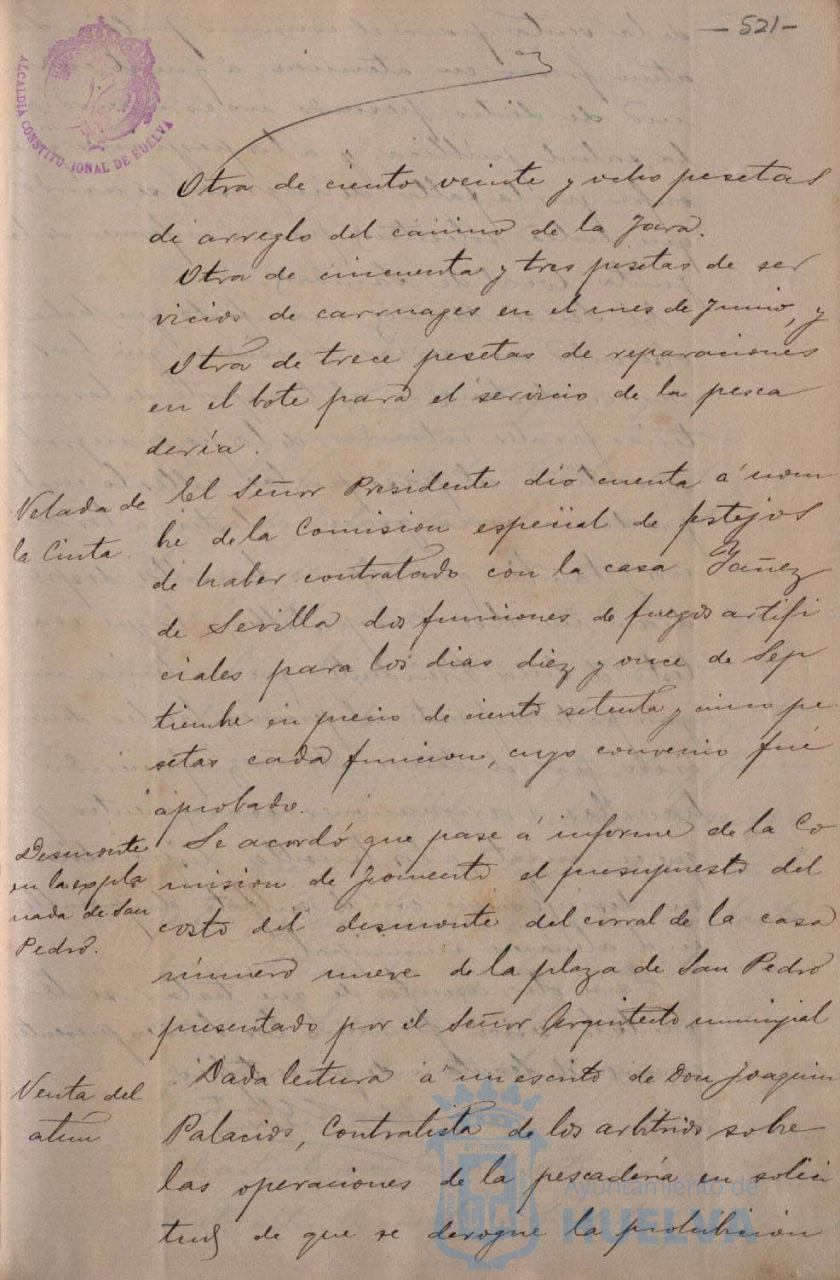 — 521 —
ALCALDIA CONSTITUCIONAL DE HUELVA
Otra de ciento veinte y ocho pesetas
de arreglo del camino de la Jara.
Otra de cincuenta y tres pesetas de ser
vicios de carruages en el mes de Junio, y
Otra de trece pesetas de reparaciones
en el bote para el servicio de la pesca
dería.
Velada de
la Cinta.
El Señor Presidente dió cuenta á nom
bre de la Comision especial de festejos
de haber contratado con la casa Yañez
de Sevilla dos funciones de fuegos artifi
ciales para los dias diez y once de Sep
tiembre en precio de ciento setenta y cinco pe
setas cada funcion, cuyo convenio fué
aprobado.
Desmonte
en la expla
nada de San
Pedro.
Se acordó que pase á informe de la Co
mision de Fomento el presupuesto del
costo del desmonte del corral de la casa
número nueve de la plaza de San Pedro
presentado por el Señor Arquitecto municipal
Venta del
atun
Dada lectura á un escrito de Don Joaquin
Palacios, Contratista de los arbitrios sobre
las operaciones de la pescadería en solici
tud de que se derogue la prohibicion
Ayuntamiento de
HUELVA